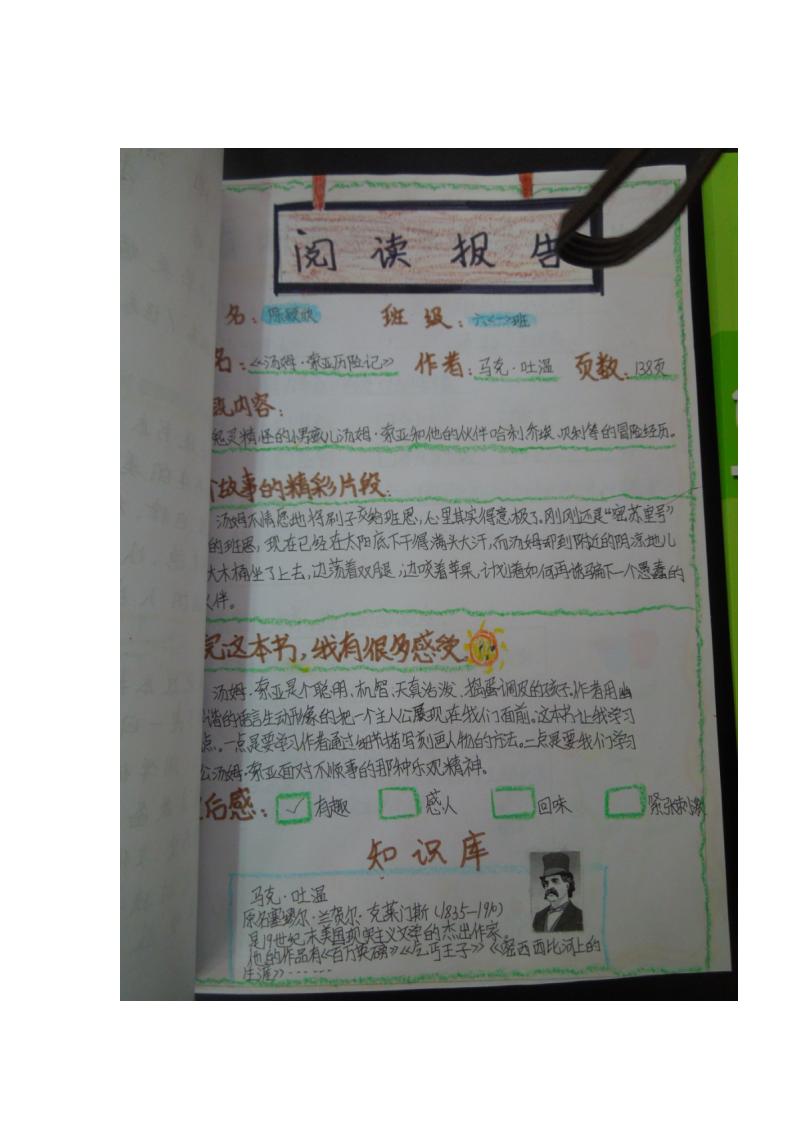 阅读报告
名：陈颖欣 班级：六<一>班
名：《汤姆·索亚历险记》 作者：马克·吐温 页数：138页
内容：
灵精怪的小男孩儿汤姆·索亚和他的伙伴哈利乔埃、贝利等的冒险经历。
故事的精彩片段：
汤姆不情愿地将刷子交给班恩，心里其实得意极了。刚刚还是“密苏里号”
的班恩，现在已经在太阳底下干得满头大汗，而汤姆却到附近的阴凉地儿
大木桶坐了上去，边荡着双腿，边咬着苹果，计划着如何再诱骗下一个愚蠢的
伙伴。
完这本书，我有很多感受
汤姆·索亚是个聪明、机智、天真活泼、捣蛋调皮的孩子。作者用幽
谐的语言生动形象的把一个主人公展现在我们面前。这本书让我学习
点。一点是要学习作者通过细节描写刻画人物的方法。二点是要我们学习
公汤姆·索亚面对不顺事的那种乐观精神。
后感：✓有趣 感人 回味 紧张刺激
知识库
马克·吐温
原名塞缪尔·兰贺尔·克莱门斯（1835—1910）
是19世纪末美国现实主义文学的杰出作家。
他的作品有《百万英磅》《乞丐王子》《密西西比河上的
生涯》……